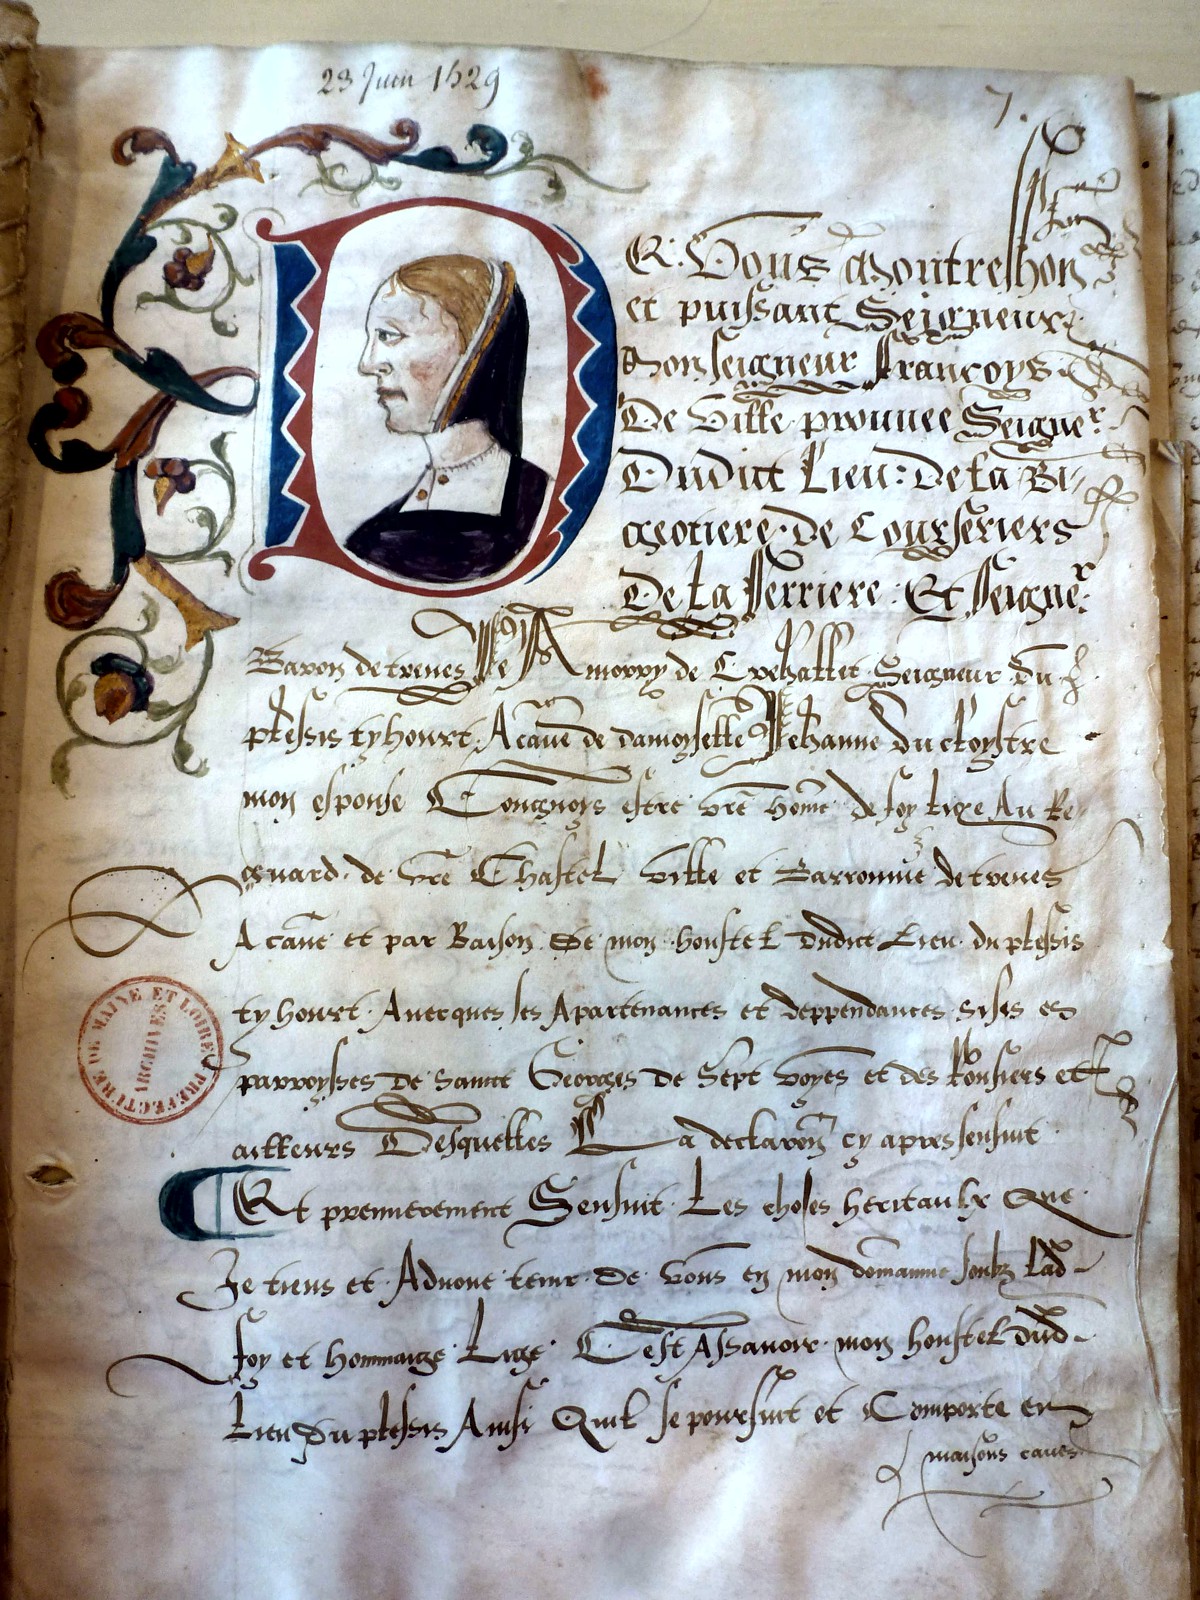 23 Juin 1529
7.
DE Vous Mon treshon
et puissant Seigneur
Monseigneur Francoys
De Ville prouuee Seigner
Dudict Lieu: De la Bi
geotiere de Courseriers
De La Ferriere Et Seigner
Baron de treues Je Amorry de Crehallet Seigneur du
plessis tyhourt A cause de damoyselle Jehanne du cloystre
mon espouse Congnoys estre vre home de foy lige Au Re
guard de vre Chastel ville et Barronnie de treues
A cause et par Raison De mon houstel dudict Lieu du plessis
tyhourt Auecques les Apartenances et deppendances sises es
parroysses de Sainct Georges de Sept voyes et des Rousiers et
ailleurs Desquelles La declaron cy apres sensuit
Et premierement Sensuit Les choses heritaulx Que
Je tiens et Aduoue tenir De vous en mon domainne soubz lad
foy et hommaige Lige Cest Assauoir mon houstel dud
Lieu du plessis Ainsi Quil se poursuit et Comporte en
maisons caues
PREFECTURE DE MAINE ET LOIRE
ARCHIVES